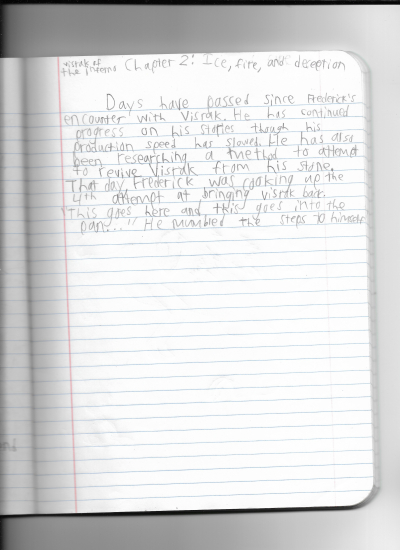 visrak of
the inferno
Chapter 2: Ice, fire, and deception
Days have passed since Frederick's
encounter with Visrak. He has continued
progress on his stories though his
production speed has slowed. He has also
been researching a method to attempt
to revive Visrak from his stone.
That day, Frederick was cooking up the
4th attempt at bringing visrak back.
"This goes here and this goes into the
pan..." He mumbled the steps to himself.